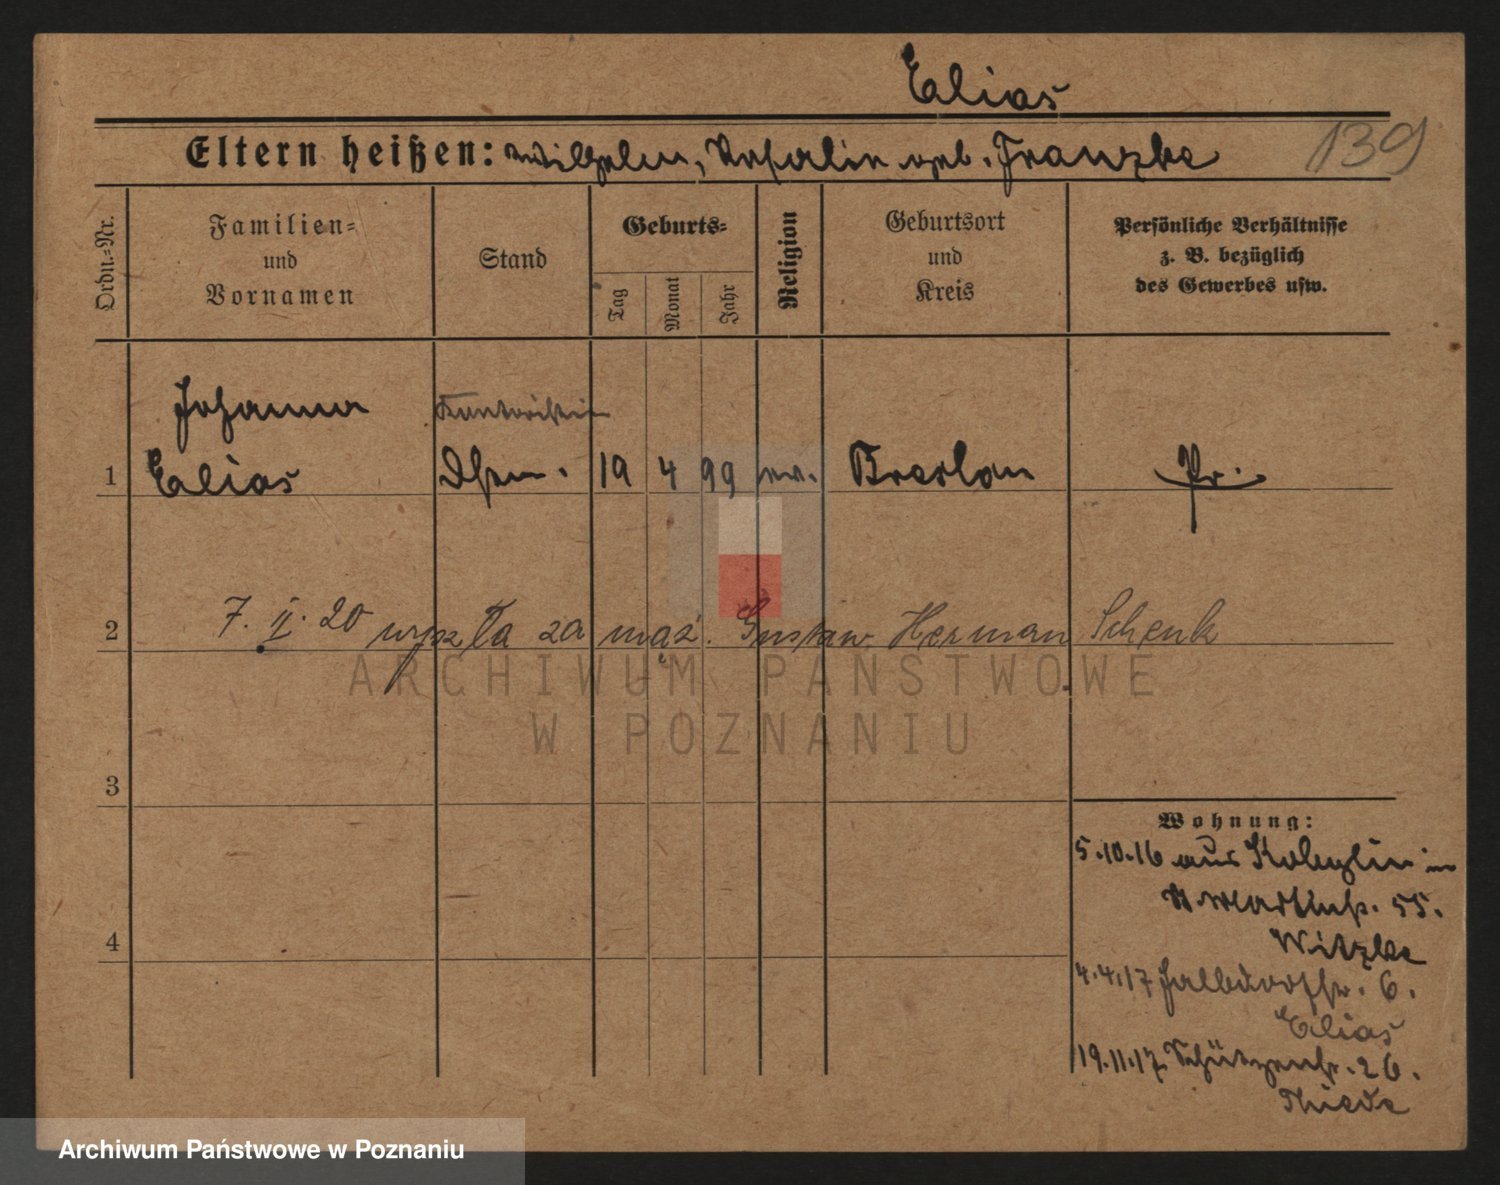 Elias
139
Eltern heißen: Wilhelm, Rosalie geb. Franzke
Ordn.-Nr.
Familien- und Vornamen
Stand
Geburts-
Tag
Monat
Jahr
Religion
Geburtsort und Kreis
Persönliche Verhältnisse z. B. bezüglich des Gewerbes usw.
Johanna
Kontoristin
1 Elias 19 4 99 ev. Breslau Pr.
2 7. II. 20 wyszła za mąż. Gustaw Herman Schenk
ARCHIWUM PAŃSTWOWE
W POZNANIU
3
Wohnung:
5.10.16 aus Kobylin in
St. Martinstr. 55.
4
Witzke
4.4.17 6.
Elias
19.11.17 Schützenstr. 26.
Thiede
Archiwum Państwowe w Poznaniu